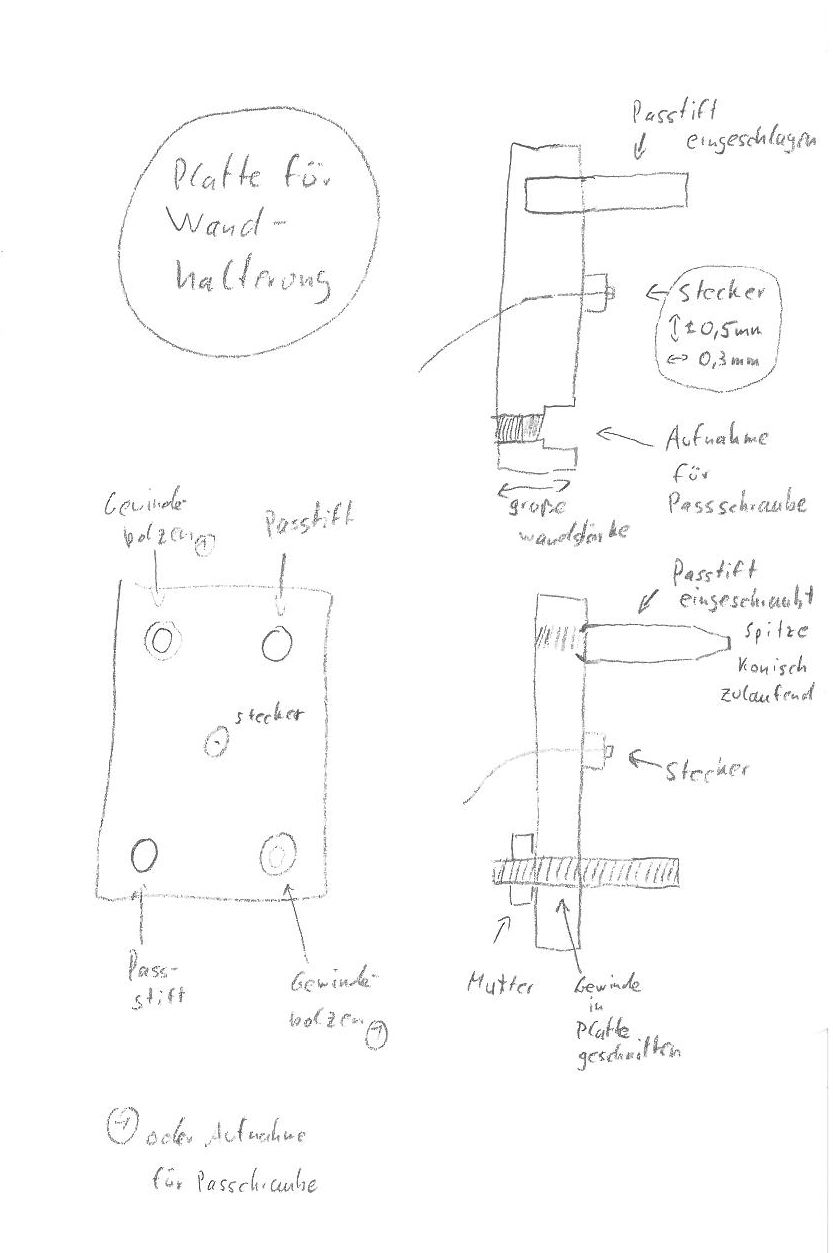 Platte für
Wand-
halterung
Passtift
eingeschlagen
Stecker
↕ ±0,5mm
↔ 0,3mm
Aufnahme
für
Passschraube
große
wandstärke
Gewinde-
bolzen ①
Passtift
stecker
Pass-
stift
Gewinde-
bolzen ①
Passtift
eingeschraubt
Spitze
konisch
zulaufend
Stecker
Mutter
Gewinde
in
Platte
geschnitten
① oder Aufnahme
für Passchraube